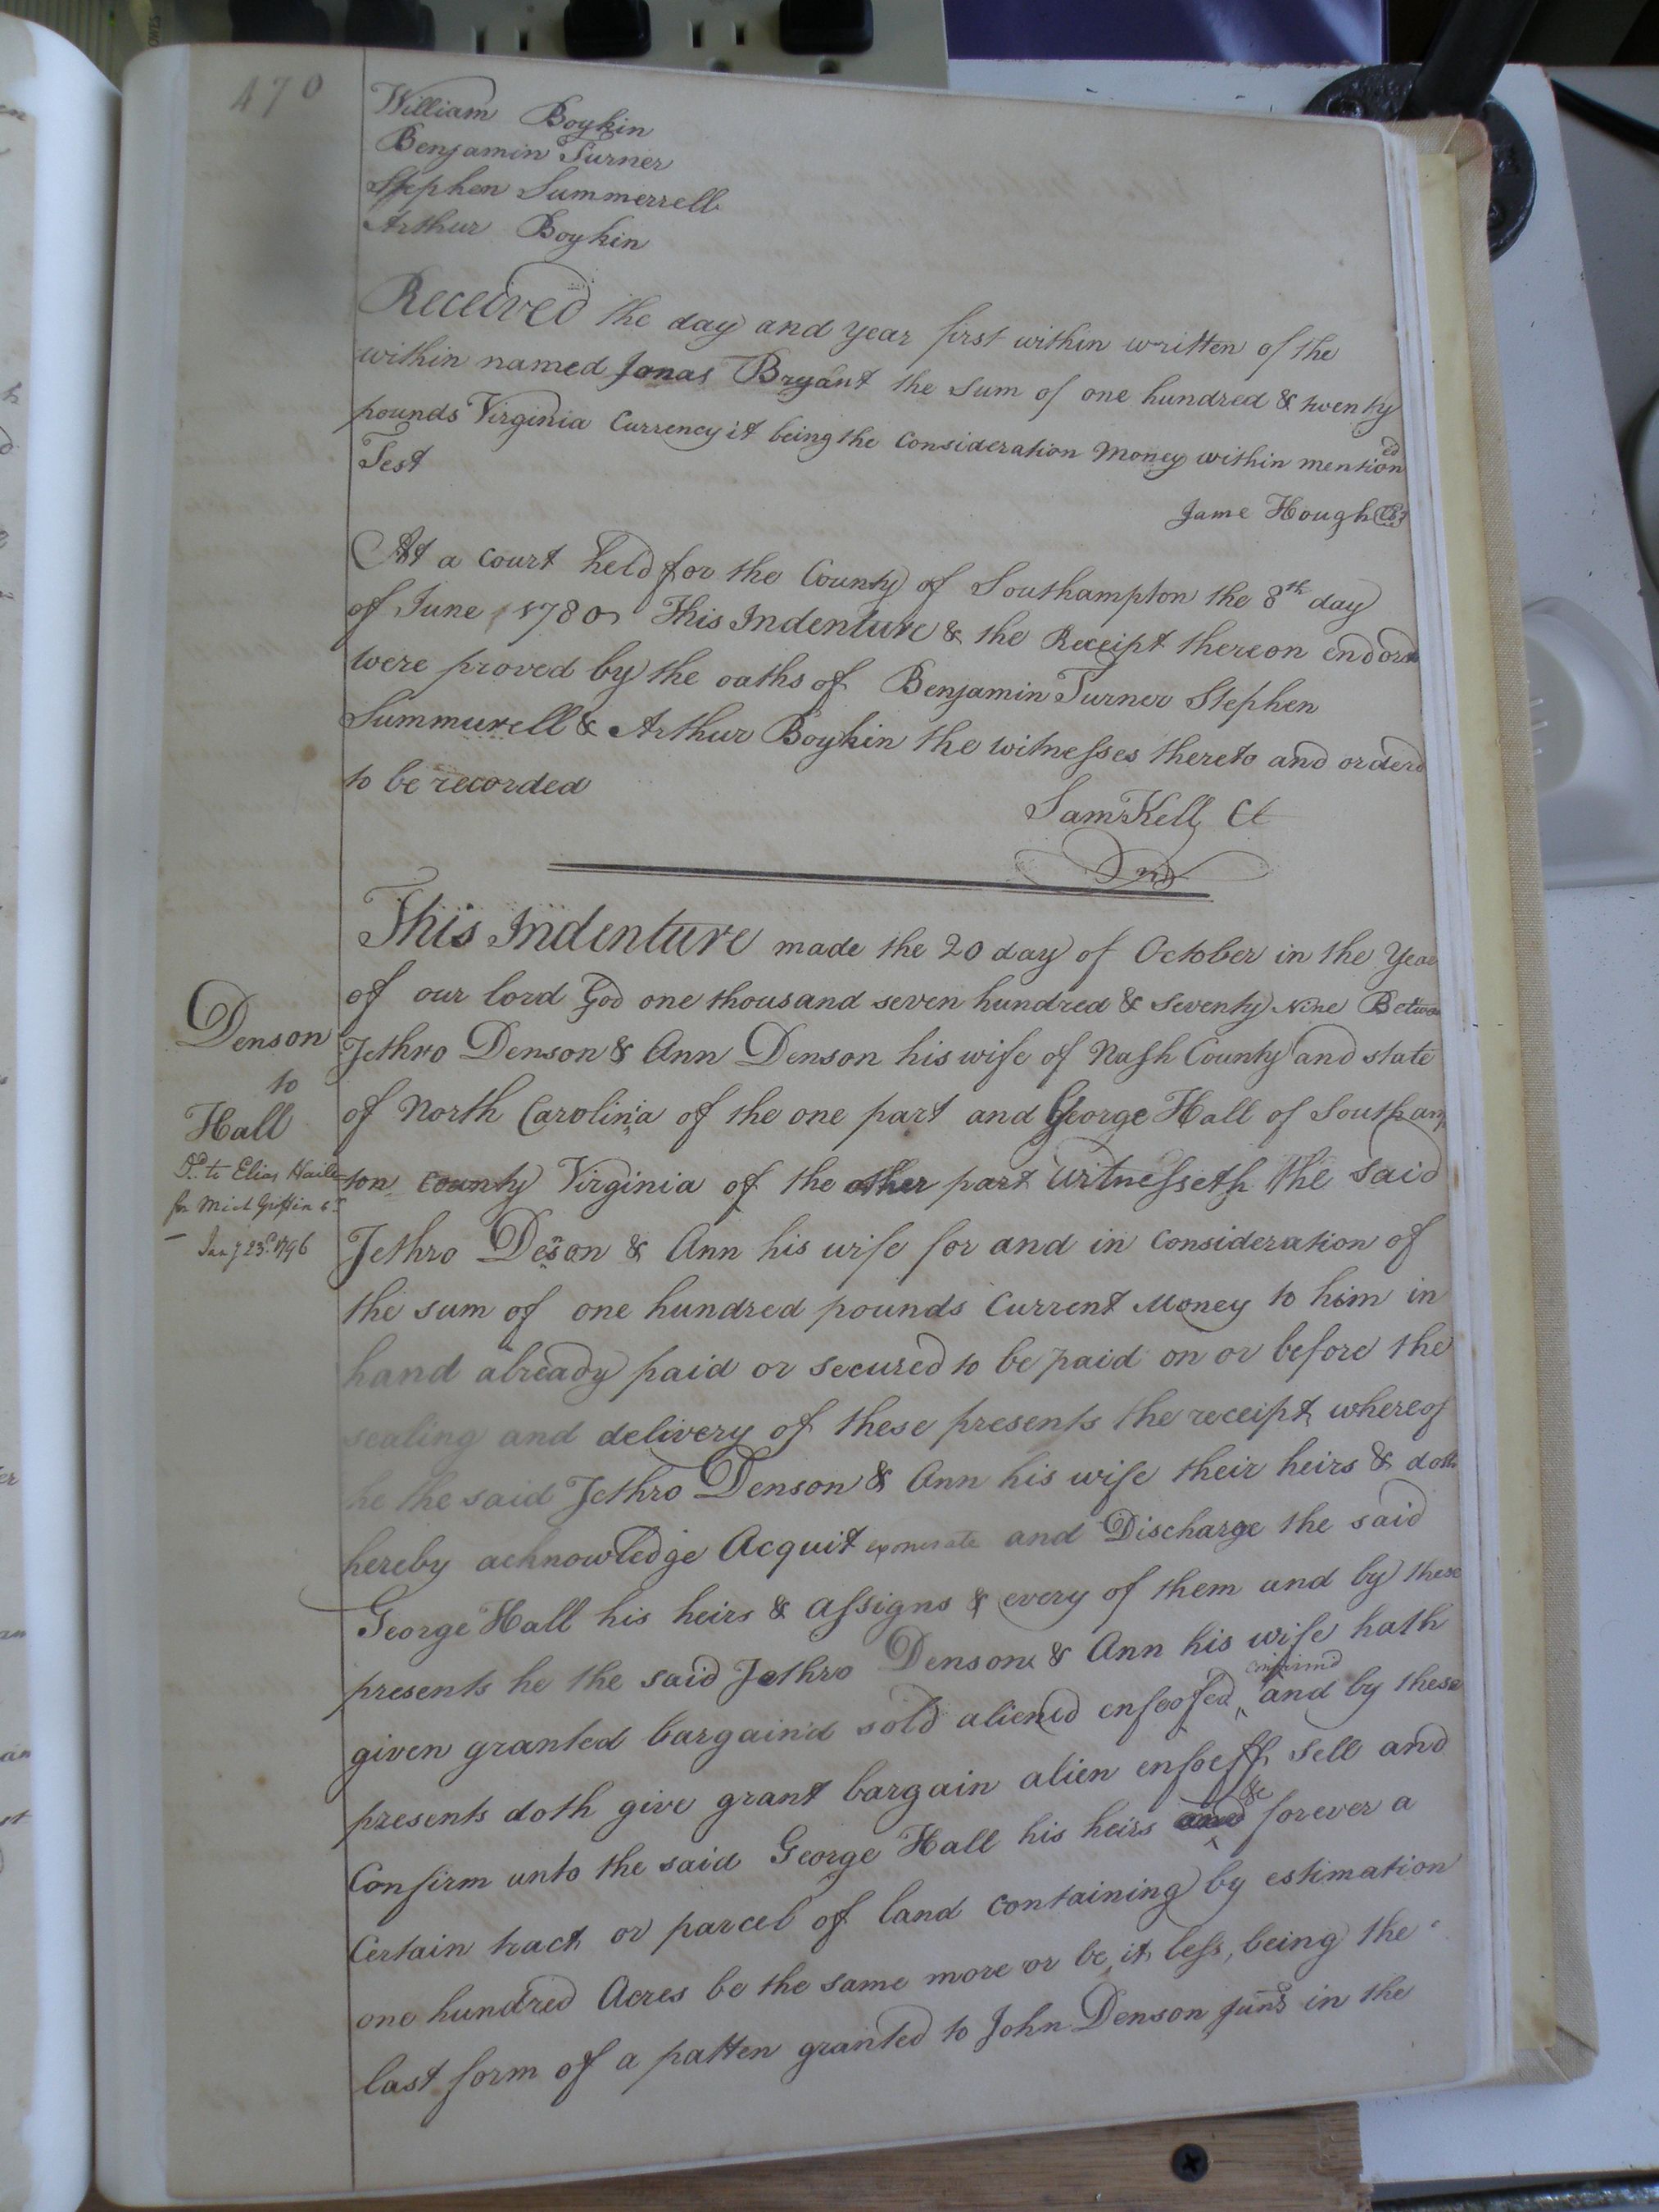 470
William Boykin
Benjamin Turner
Stephen Summerrell
Arthur Boykin
Received the day and year first within written of the
within named Jonas Bryant the Sum of one hundred & twenty
pounds Virginia Currency it being the Consideration Money within mentioned
Test
Jame Hough
At a Court held for the County of Southampton the 8th day
of June 1780 This Indenture & the Receipt thereon endors
were proved by the oaths of Benjamin Turner Stephen
Summurell & Arthur Boykin the witnesses thereto and orderd
to be recorded
Sam Kell Cl
This Indenture made the 20 day of October in the Year
of our lord God one thousand seven hundred & seventy Nine Betwe
Jethro Denson & Ann Denson his wife of Nash County and state
of North Carolina of the one part and George Hall of Southamp
ton County Virginia of the other part Witnesseth the said
Jethro Denson & Ann his wife for and in Consideration of
the sum of one hundred pounds Current Money to him in
hand already paid or secured to be paid on or before the
sealing and delivery of these presents the receipt whereof
he the said Jethro Denson & Ann his wife their heirs & doth
hereby acknowledge Acquit exonerate and Discharge the said
George Hall his heirs & assigns & every of them and by these
presents he the said Jethro Denson & Ann his wife hath
given granted bargain'd sold aliened enfeofed confirmd and by these
presents doth give grant bargain alien enfoeff sell and
Confirm unto the said George Hall his heirs &c forever a
Certain tract or parcel of land containing by estimation
one hundred Acres be the same more or be it less, being the
last form of a patten granted to John Denson Junr in the
Denson
to
Hall
Dd. to Elias Haile
for Mich Griffin
Jany 23d. 1796